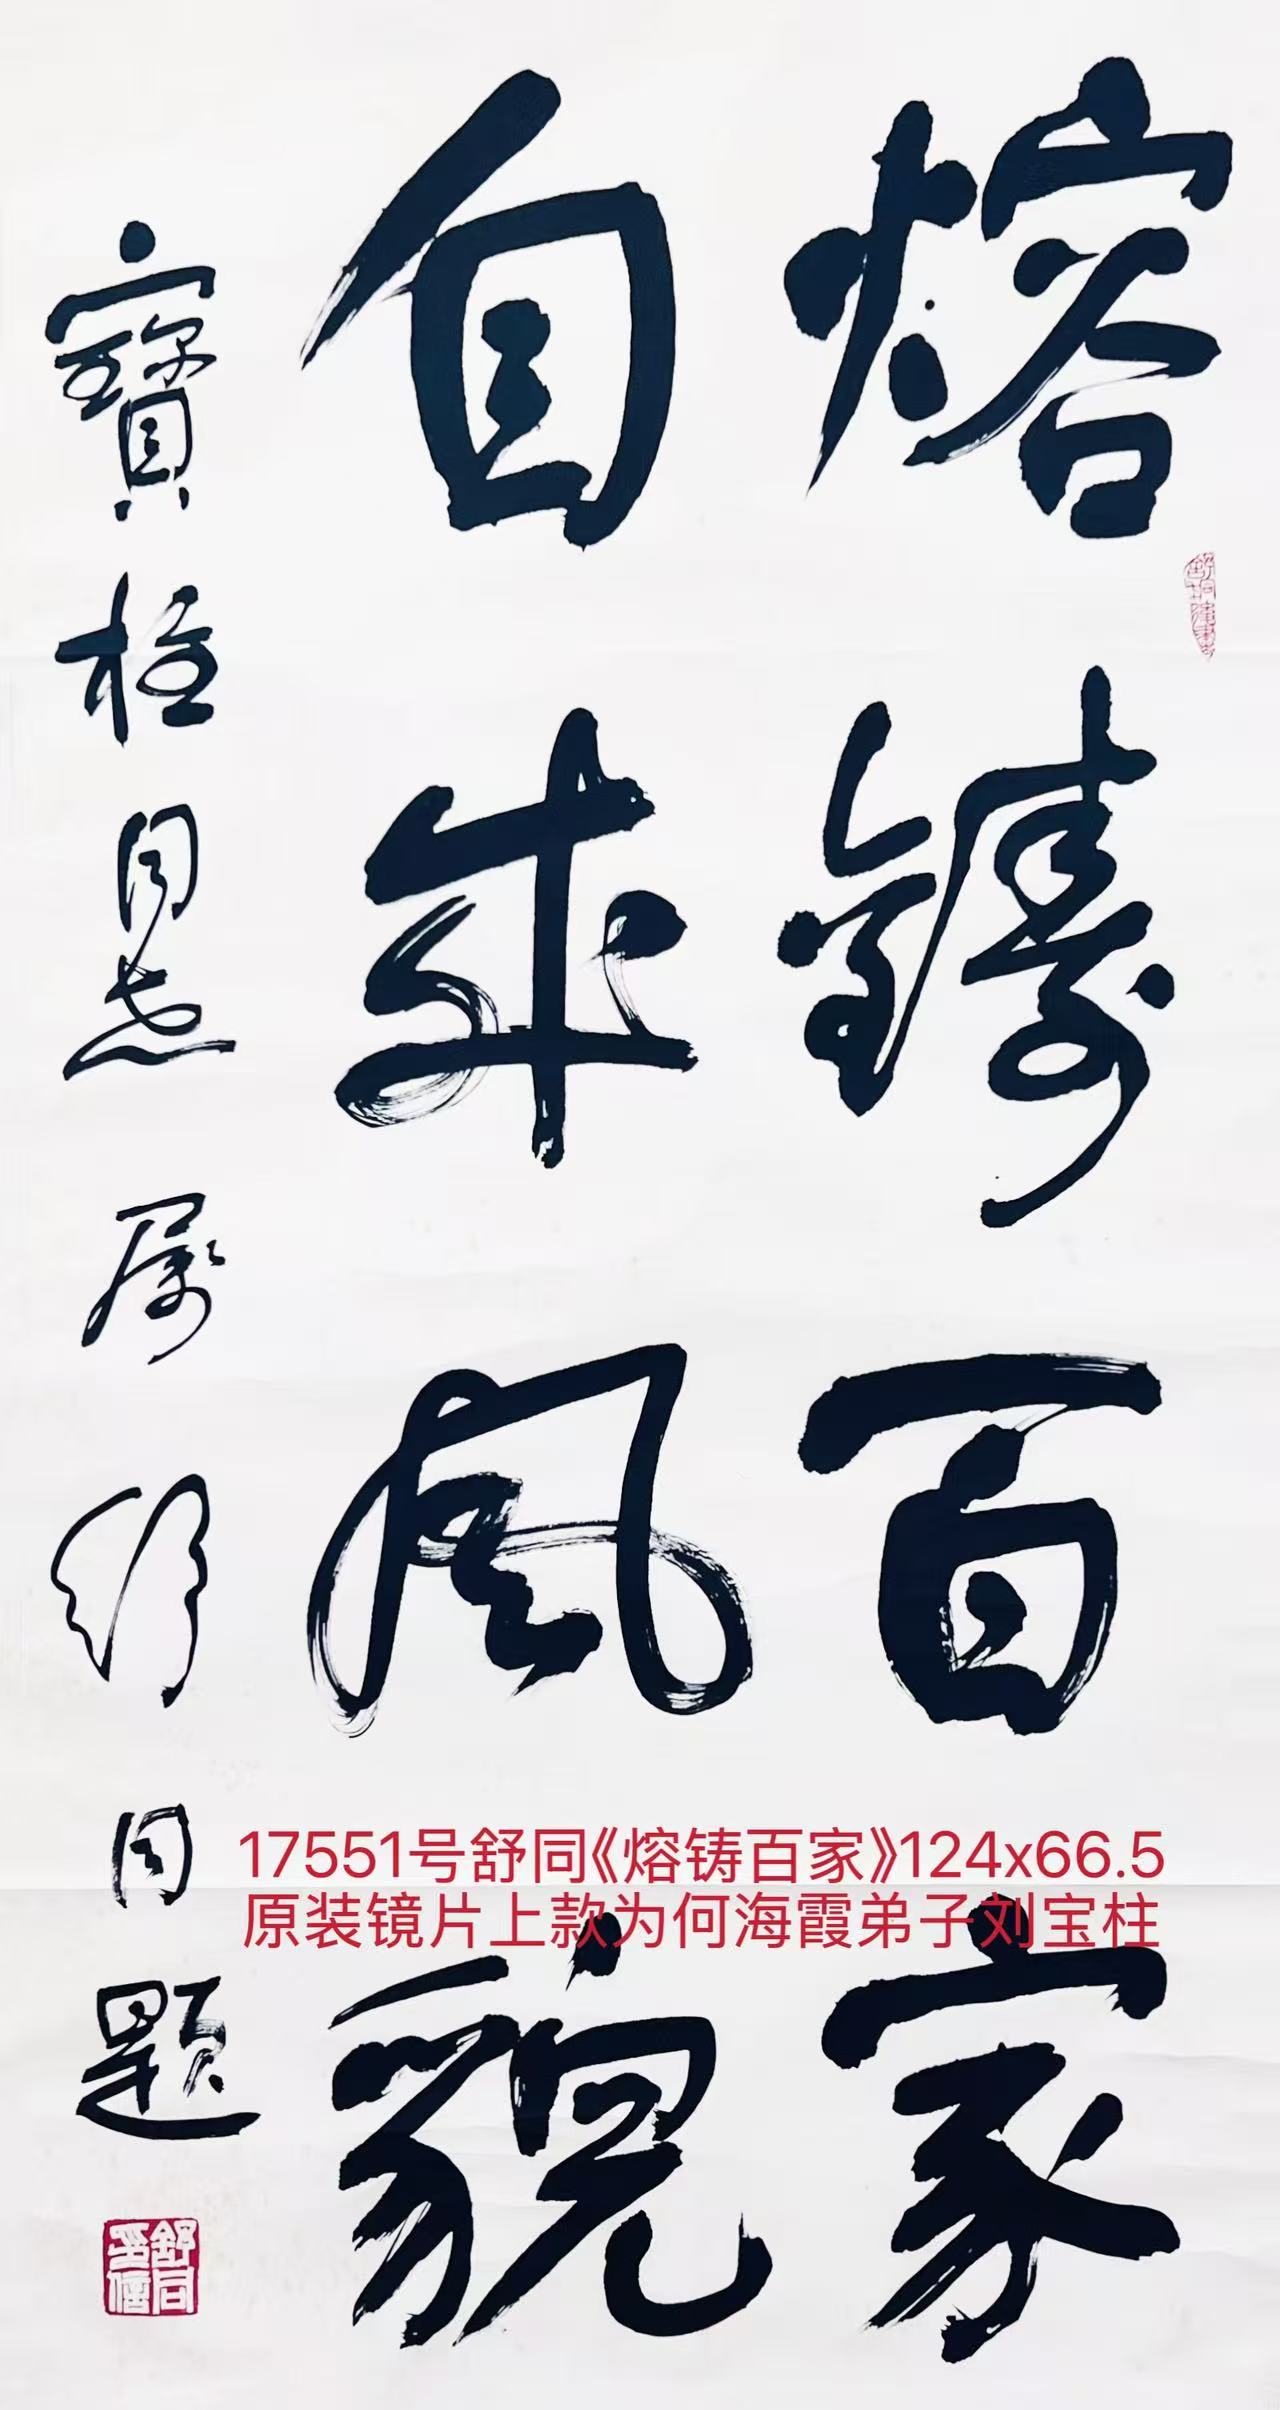 熔鑄百家
自成風貌
寶柱同志屬 舒同題
舒同印信
17551号舒同《熔铸百家》124x66.5
原装镜片上款为何海霞弟子刘宝柱